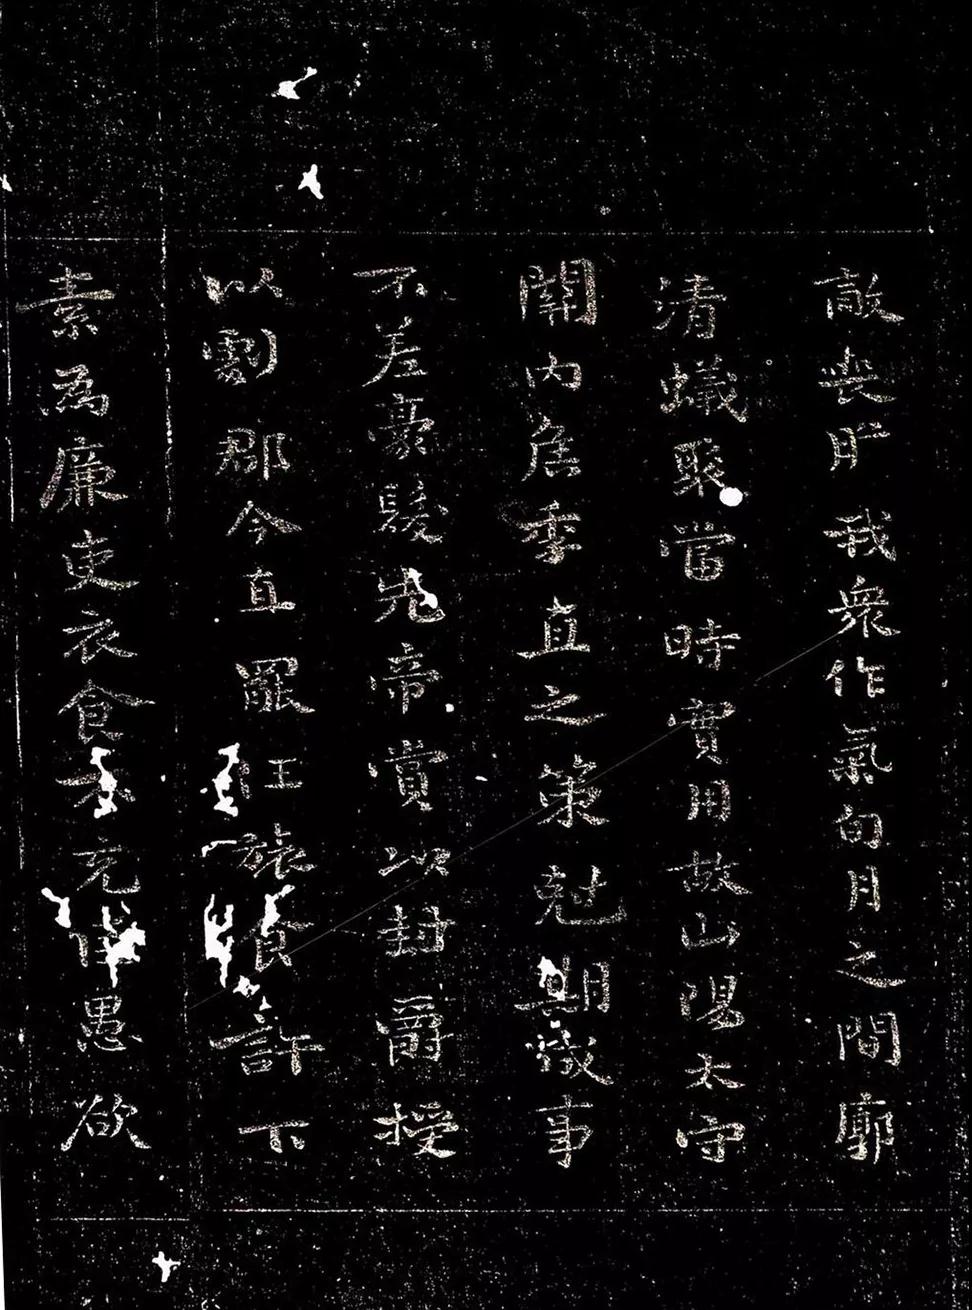 敵喪膽我衆作氣旬月之間廓
清蟻聚當時實用故山陽太守
關內侯季直之策剋期成事
不差豪髮先帝賞以封爵授
以劇郡今直罷任旅食許下
素爲廉吏衣食不充臣愚欲